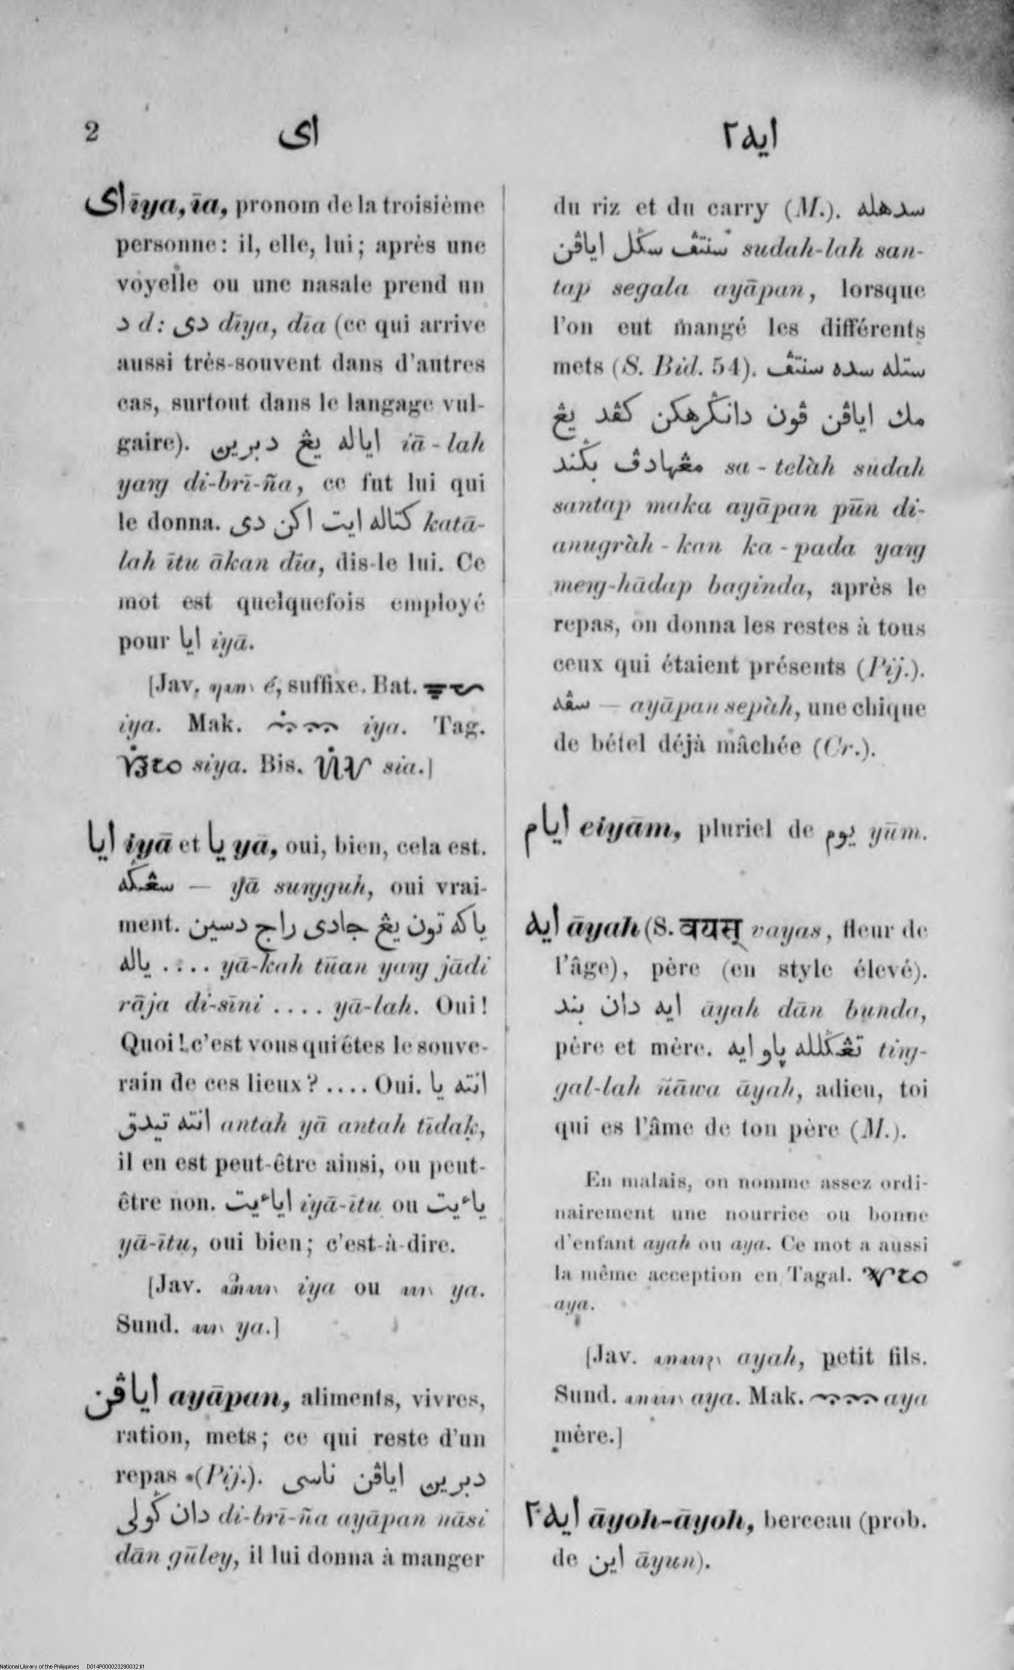 2 اى ايه٢
اى īya, īa, pronom de la troisième
personne: il, elle, lui; après une
voyelle ou une nasale prend un
د d: دى dīya, dīa (ce qui arrive
aussi très-souvent dans d'autres
cas, surtout dans le langage vul-
gaire). اياله يڠ دبرين iā-lah
yaṅg di-brī-ña, ce fut lui qui
le donna. كتاله ايت اكن دى katā-
lah ītu ākan dīa, dis-le lui. Ce
mot est quelquefois employé
pour ايا iyā.
[Jav. é, suffixe. Bat.
iya. Mak. iya. Tag.
siya. Bis. sia.]
ايا iyā et يا yā, oui, bien, cela est.
سڠݢه — yā suṅgguh, oui vrai-
ment. ياكه تون يڠ جادى راج دسين
ياله .... yā-kah tūan yaṅg jādi
rāja di-sīni .... yā-lah. Oui!
Quoi! c'est vous qui êtes le souve-
rain de ces lieux? .... Oui. انته يا
انته تيدق antah yā antah tīdaḳ,
il en est peut-être ainsi, ou peut-
être non. اياءيت iyā-ītu ou ياءيت
yā-ītu, oui bien; c'est-à-dire.
[Jav. iya ou ya.
Sund. ya.]
اياڤن ayāpan, aliments, vivres,
ration, mets; ce qui reste d'un
repas (Pij.). دبرين اياڤن ناسى
دان ݢولى di-brī-ña ayāpan nāsi
dān gūley, il lui donna à manger
du riz et du carry (M.). سدهله
سنتڤ سݢل اياڤن sudah-lah san-
tap segala ayāpan, lorsque
l'on eut mangé les différents
mets (S. Bid. 54). ستله سده سنتڤ
مك اياڤن ڤون دانݢرهكن كڤد يڠ
مڠهادڤ بݢند sa-telàh sudah
santap maka ayāpan pūn di-
anugràh-kan ka-pada yaṅg
meṅg-hādap baginda, après le
repas, on donna les restes à tous
ceux qui étaient présents (Pij.).
سڤه — ayāpan sepàh, une chique
de bétel déjà mâchée (Cr.).
ايام eiyām, pluriel de يوم yūm.
ايه āyah (S. वयस् vayas, fleur de
l'âge), père (en style élevé).
ايه دان بند āyah dān bunda,
père et mère. تڠݢللله ڽاو ايه tiṅg-
gal-lah ñāwa āyah, adieu, toi
qui es l'âme de ton père (M.).
En malais, on nomme assez ordi-
nairement une nourrice ou bonne
d'enfant ayah ou aya. Ce mot a aussi
la même acception en Tagal.
aya.
[Jav. ayah, petit fils.
Sund. aya. Mak. aya
mère.]
ايه٢ āyoh-āyoh, berceau (prob.
de اين āyun).
National Library of the Philippines